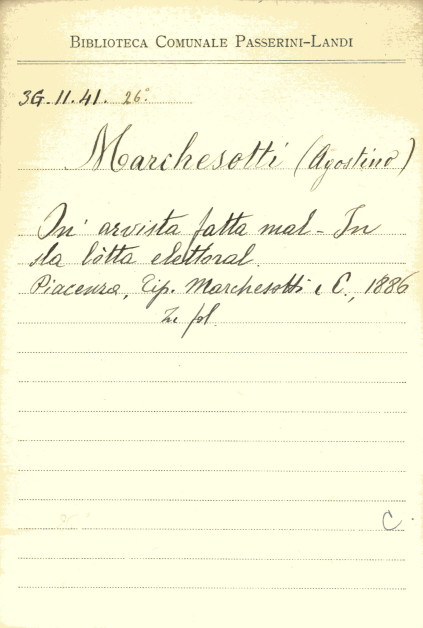 BIBLIOTECA COMUNALE PASSERINI-LANDI
3G.11.41. 26°
Marchesotti (Agostino)
In' arvista fatta mal - In
sla lòtta elettoral.
Piacenza, Tip. Marchesotti e C., 1886
In fol.
C.